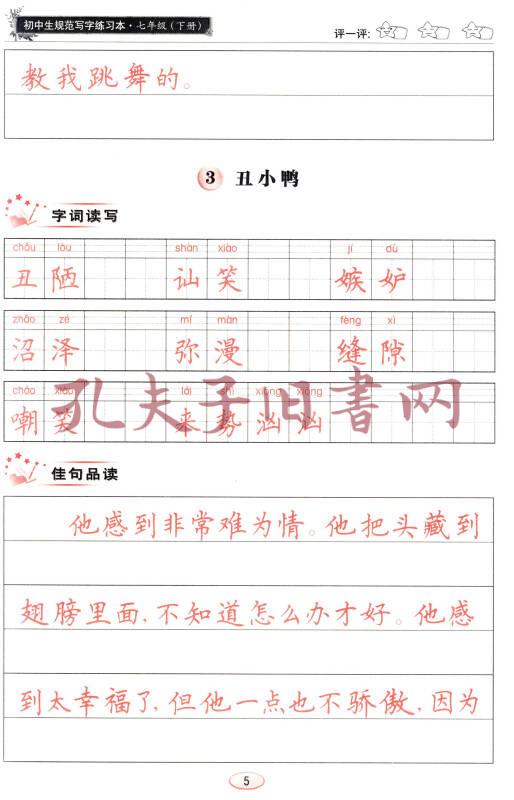 初中生规范写字练习本·七年级（下册）
评一评：
教我跳舞的。
3 丑小鸭
字词读写
chǒu lòu shàn xiào jí dù
丑陋 讪笑 嫉妒
zhǎo zé mí màn fèng xì
沼泽 弥漫 缝隙
cháo xiào lái shì xiōng xiōng
嘲笑 来势汹汹
孔夫子旧書网
佳句品读
他感到非常难为情。他把头藏到
翅膀里面，不知道怎么办才好。他感
到太幸福了，但他一点也不骄傲，因为
5